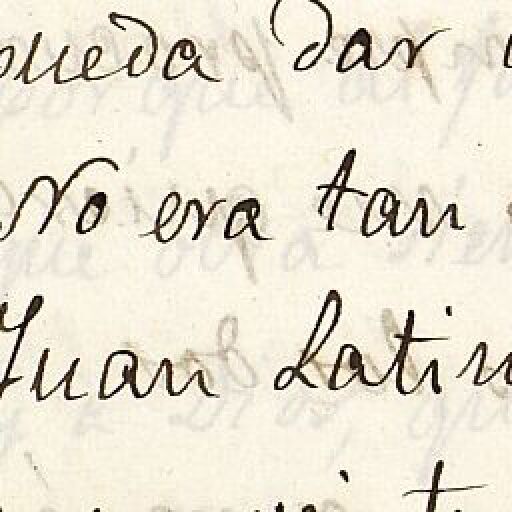 pueda dar
No era tan
Juan Latin